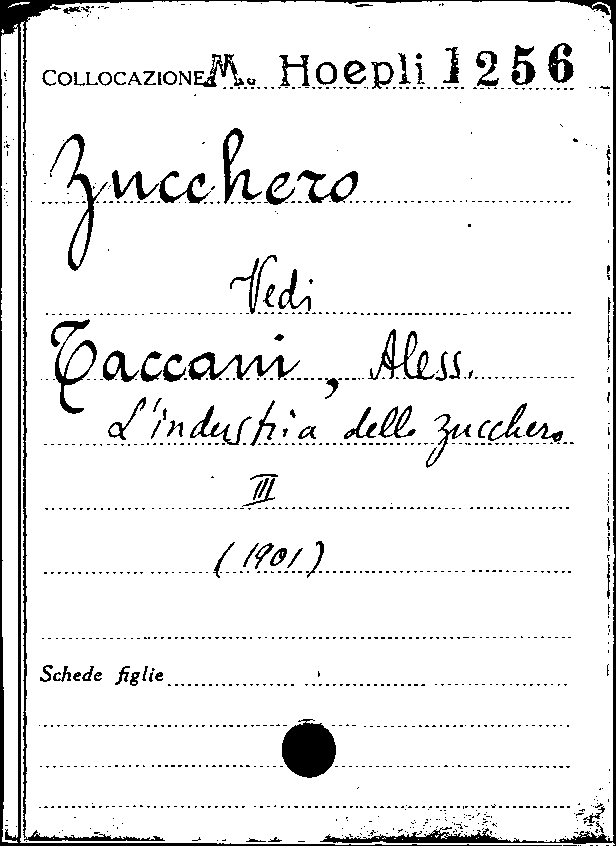 COLLOCAZIONE M. Hoepli 1256
Zucchero
Vedi
Taccani, Aless.
L'industria dello zucchero
III
(1901)
Schede figlie